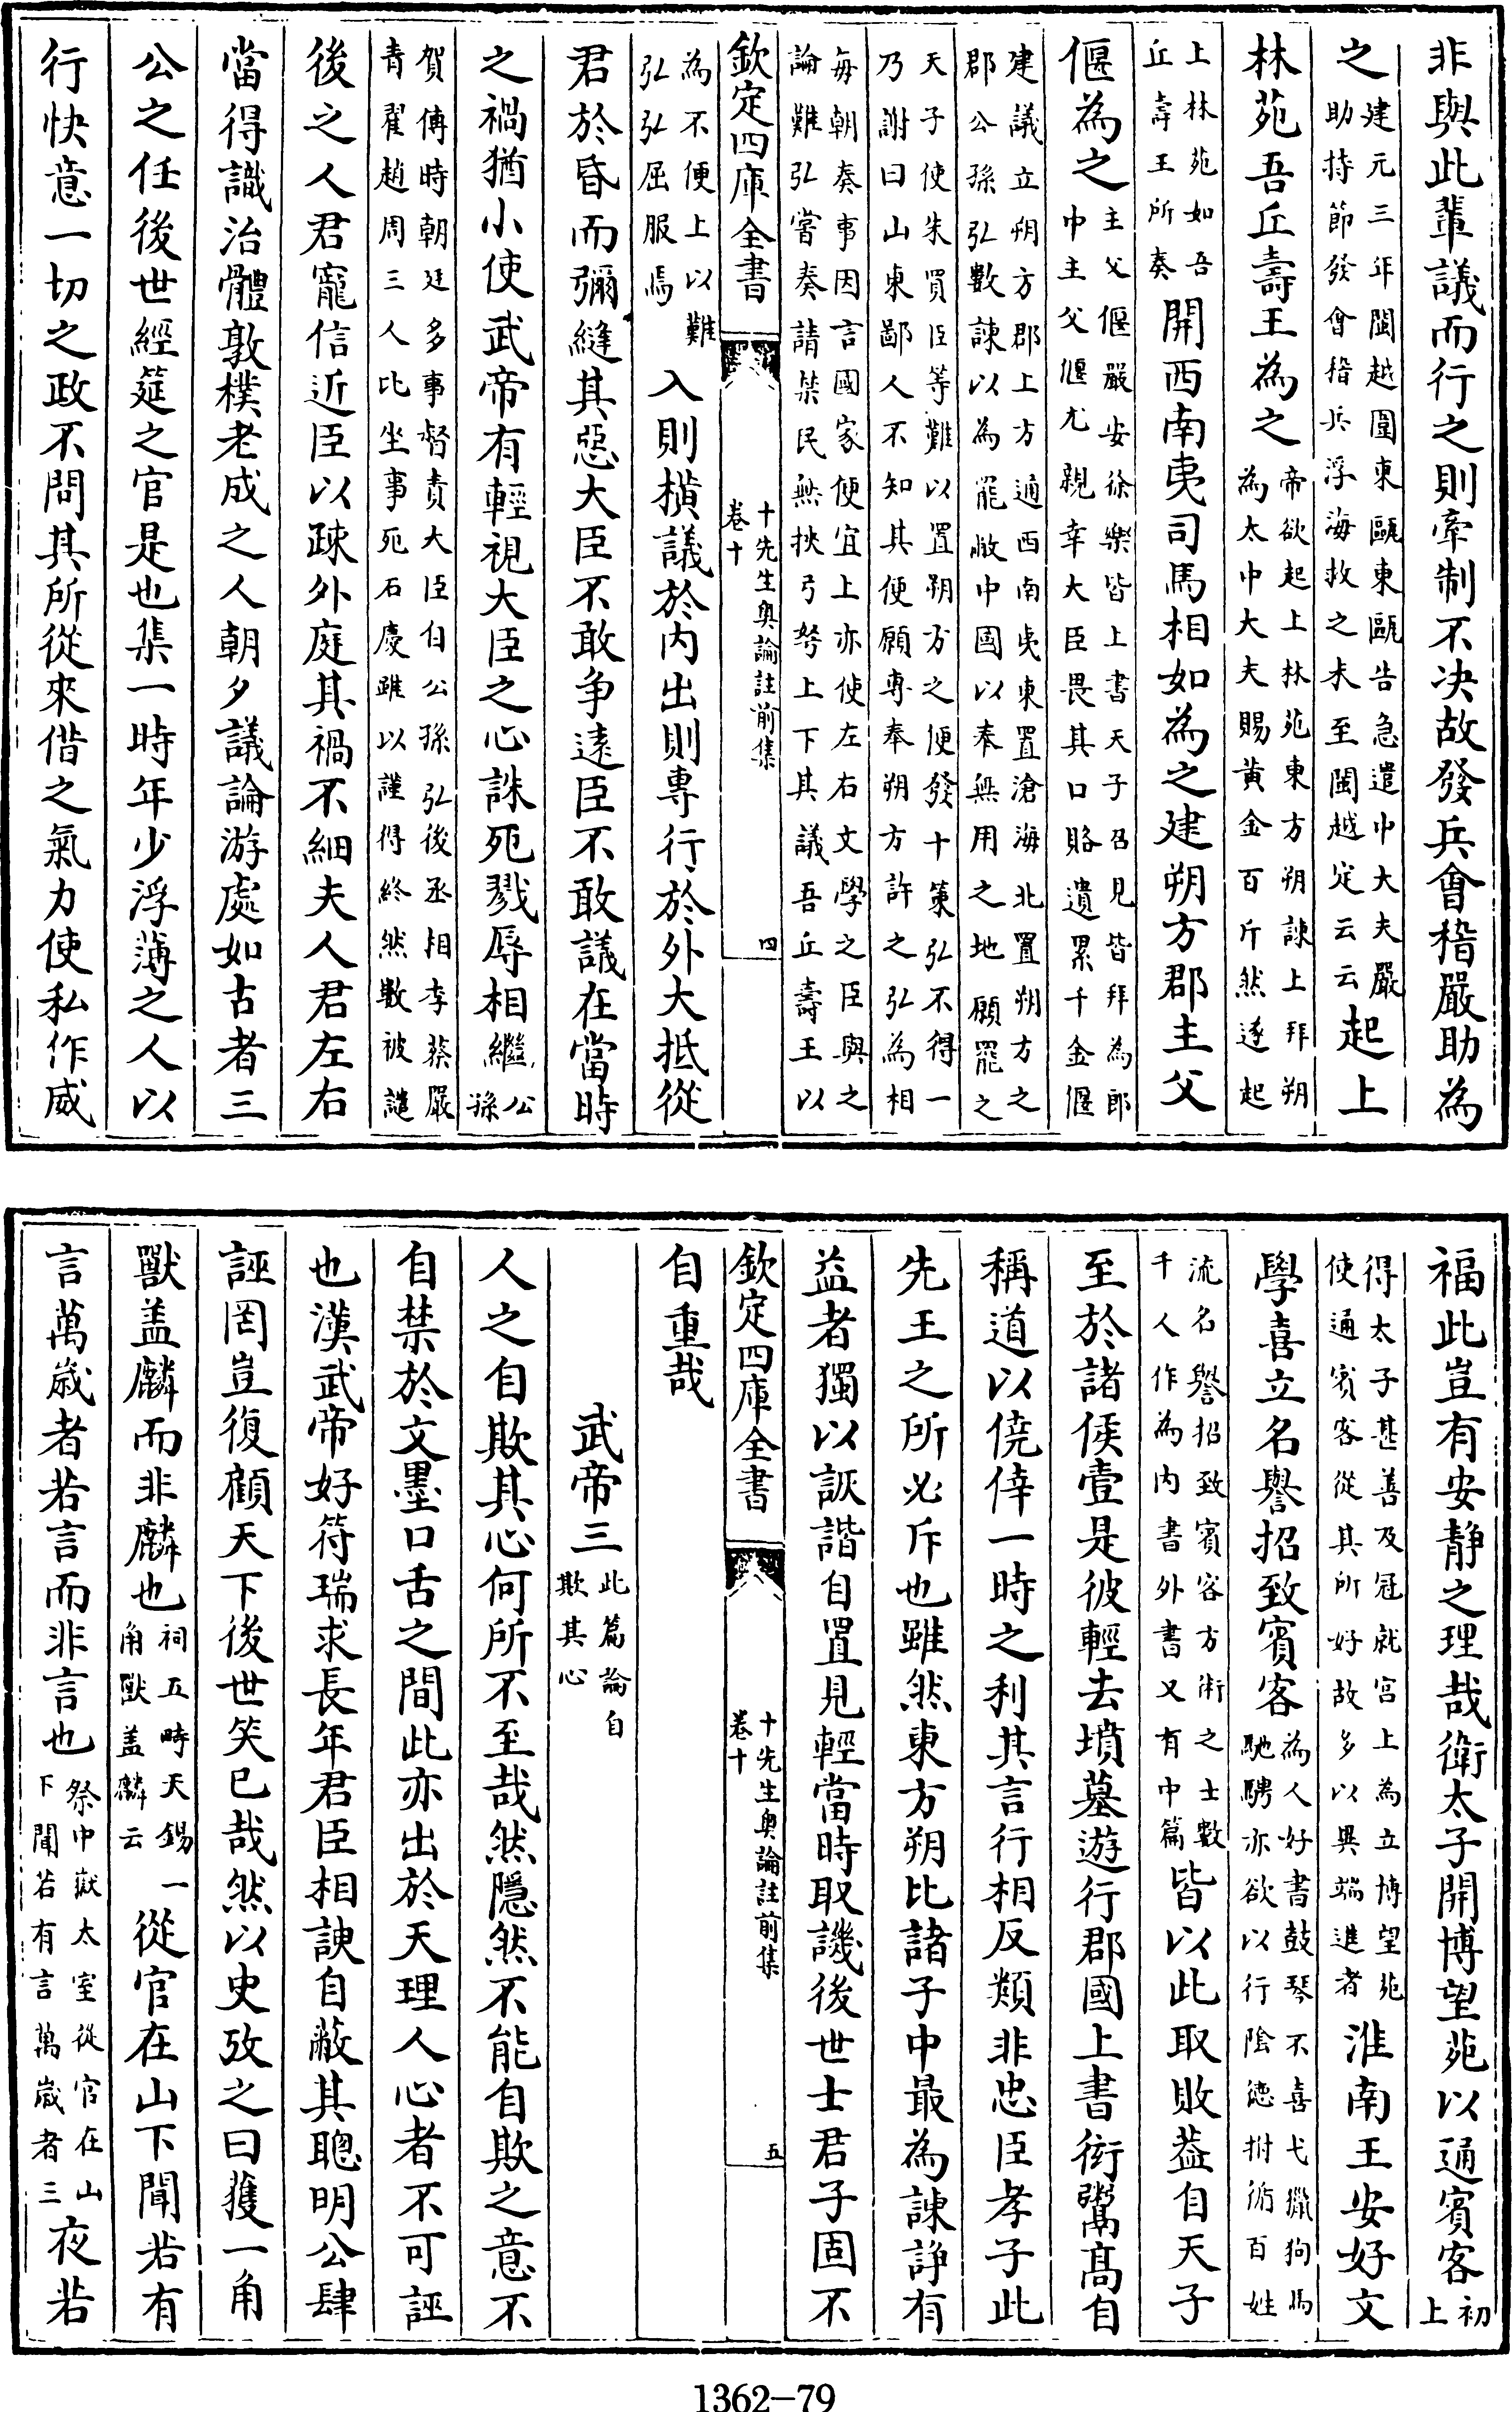 非與此輩議而行之則牽制不決故發兵會稽嚴助為
之建元三年閩越圍東甌東甌告急遣中大夫嚴助持節發會稽兵浮海救之未至閩越定云云起上
林苑吾丘壽王為之帝欲起上林苑東方朔諫上拜朔為太中大夫賜黃金百斤然遂起
上林苑如吾丘壽王所奏開西南夷司馬相如為之建朔方郡主父
偃為之主父偃嚴安徐樂皆上書天子召見皆拜為郎中主父偃尤親幸大臣畏其口賂遺累千金偃
建議立朔方郡上方通西南夷東置滄海北置朔方之郡公孫弘數諫以為罷敝中國以奉無用之地願罷之
天子使朱買臣等難以置朔方之便發十策弘不得一乃謝曰山東鄙人不知其便願專奉朔方許之弘為相
毎朝奏事因言國家便宜上亦使左右文學之臣與之論難弘嘗奏請禁民無挾弓弩上下其議吾丘壽王以
欽定四庫全書
十先生奧論註前集
卷十
四
為不便上以難弘弘屈服焉入則橫議於內出則專行於外大抵從
君於昏而彌縫其惡大臣不敢爭遠臣不敢議在當時
之禍猶小使武帝有輕視大臣之心誅死戮辱相繼公孫
賀傅時朝廷多事督責大臣自公孫弘後丞相李蔡嚴青翟趙周三人比坐事死石慶雖以謹得終然數被譴
後之人君寵信近臣以疎外庭其禍不細夫人君左右
當得識治體敦樸老成之人朝夕議論游處如古者三
公之任後世經筵之官是也集一時年少浮薄之人以
行快意一切之政不問其所從來借之氣力使私作威
福此豈有安靜之理哉衛太子開博望苑以通賓客初上
得太子甚善及冠就宮上為立博望苑使通賓客從其所好故多以異端進者淮南王安好文
學喜立名譽招致賓客為人好書鼓琴不喜弋獵狗馬馳騁亦欲以行陰德拊循百姓
流名譽招致賓客方術之士數千人作為內書外書又有中篇皆以此取敗葢自天子
至於諸侯壹是彼輕去墳墓遊行郡國上書衒鬻髙自
稱道以僥倖一時之利其言行相反類非忠臣孝子此
先王之所必斥也雖然東方朔比諸子中最為諫諍有
益者獨以詼諧自置見輕當時取譏後世士君子固不
欽定四庫全書
十先生奧論註前集
卷十
五
自重哉
武帝三此篇論自欺其心
人之自欺其心何所不至哉然隱然不能自欺之意不
自禁於文墨口舌之間此亦出於天理人心者不可誣
也漢武帝好符瑞求長年君臣相諛自蔽其聰明公肆
誣罔豈復顧天下後世笑已哉然以史攷之曰獲一角
獸盖麟而非麟也祠五畤天錫角獸盖麟云一從官在山下聞若有
言萬歲者若言而非言也祭中嶽太室從官在山下聞若有言萬歲者三夜若
1362-79